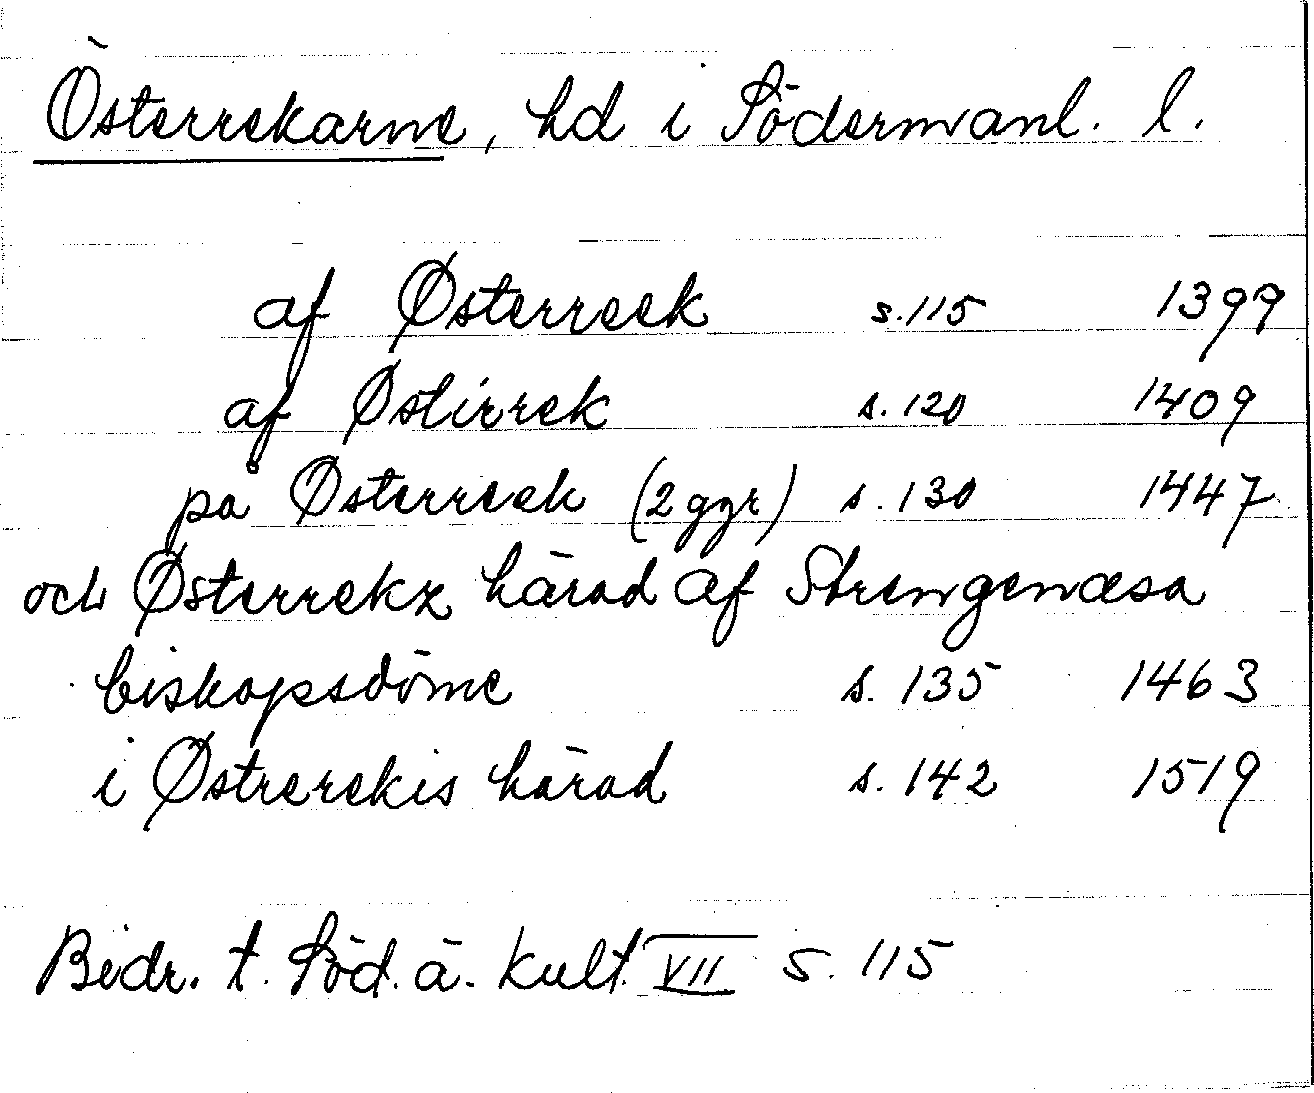 Österrekarne, hd i Södermanl. l.
af Østerreek s. 115 1399
af Østirrek s. 120 1409
på Østerreek (2 ggr) s. 130 1447
och Østerrekz härad af Strengenæsa
biskopsdöme s. 135 1463
i Østrerekis härad s. 142 1519
Bidr. t. Söd. ä. kult. VII s. 115